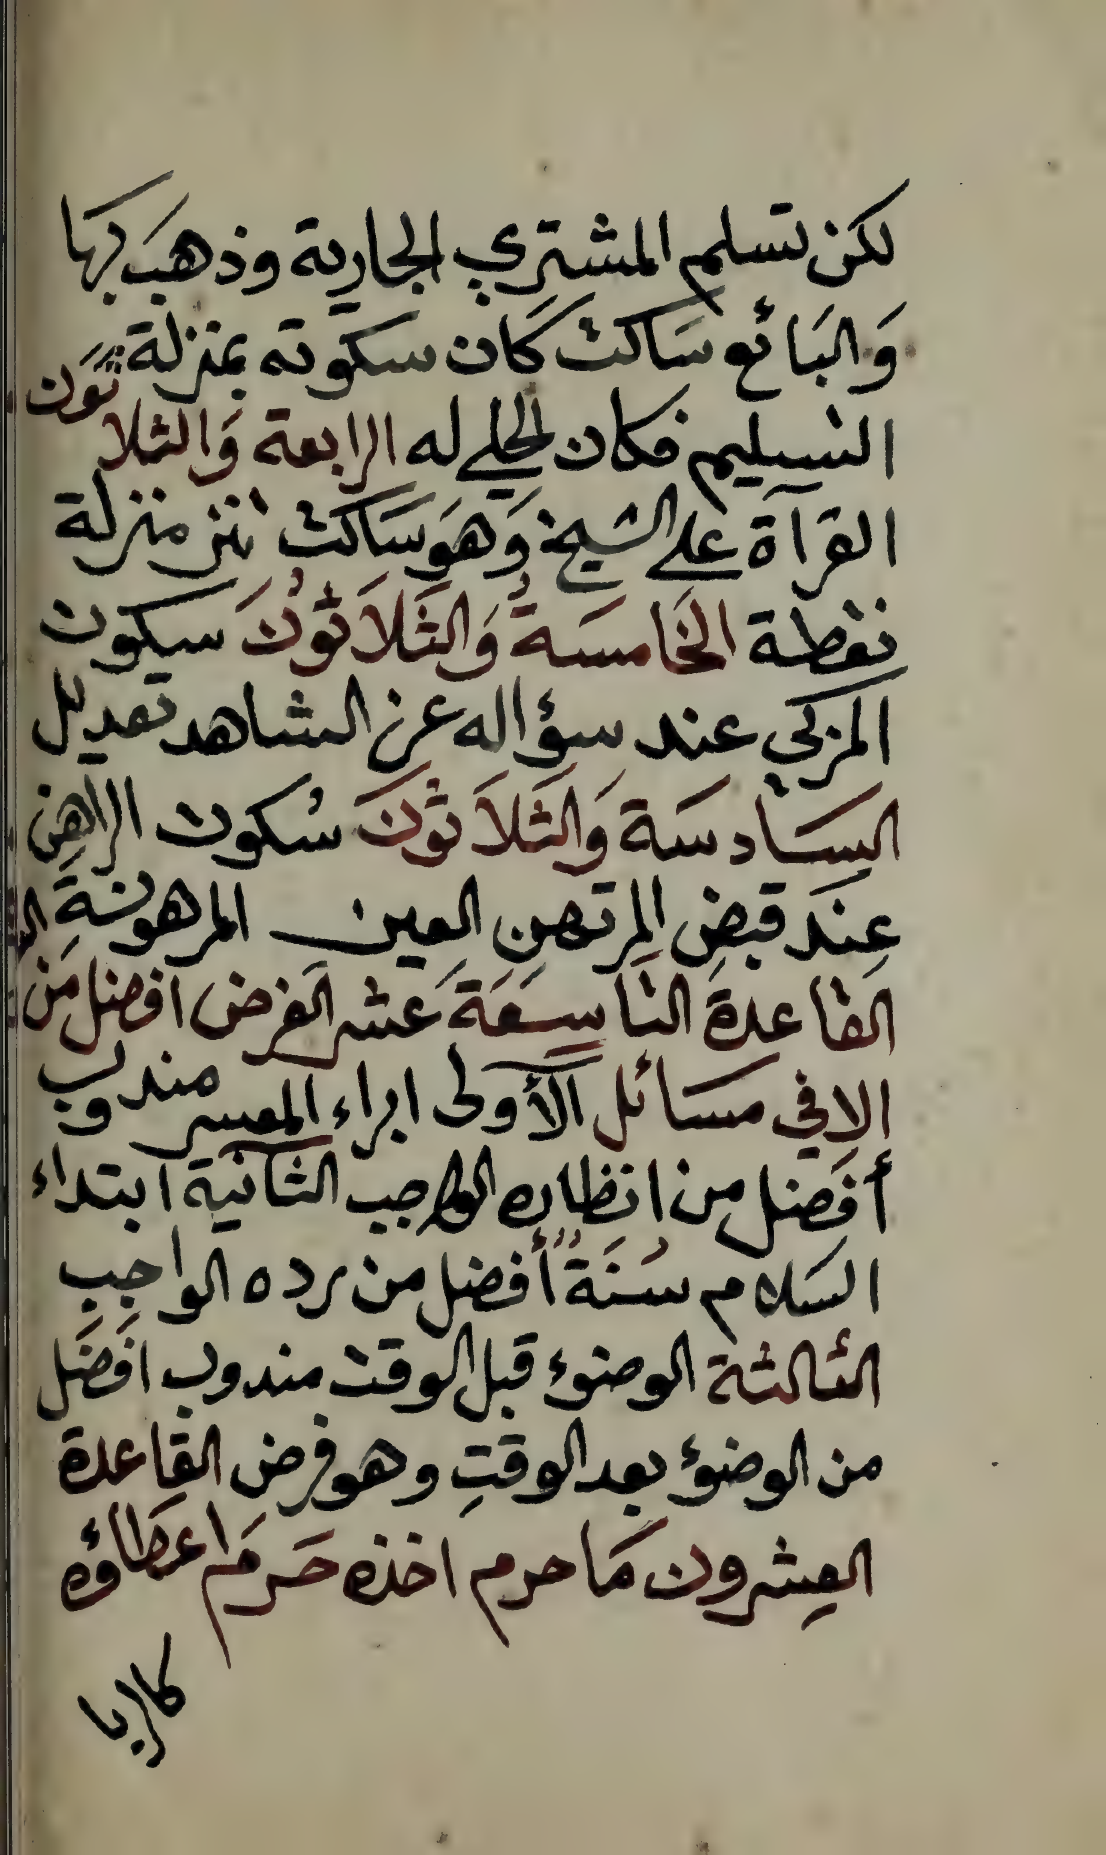 لكن تسلم المشتري الجارية وذهَب بها
وَالبَائع سَاكت كَان سكوته بمنزلة
التسليم فكان الحلي له الرابعة وَالثلاثَون
القرآة على الشيخ وَهوَ سَاكت تنز منزلة
نقطة الخَامسَة وَالثَلاَثوُنَ سكوت
المزكي عند سؤاله عن الشاهد تعديل
السَادسَة وَالثَلاَثونَ سُكوت الراهِن
عِندَ قبضِ المرتهنِ العين المرهونةِ
القاعدةَ التاسِعَة عَشر الفرض افضل من
الا في مسَائل الأولى ابراء المعسر مندوب
أفضَل من انظاره الواجب الثانية ابتداء
السَلام سُنَةٌ أفضل من رده الواجِبِ
الثالثة الوضوء قبل الوقت مندوب افضَل
من الوضوء بعد الوقتِ وهو فرض القاعدة
العِشرون مَا حرم اخذه حَرمَ اعطاؤه
كالربا